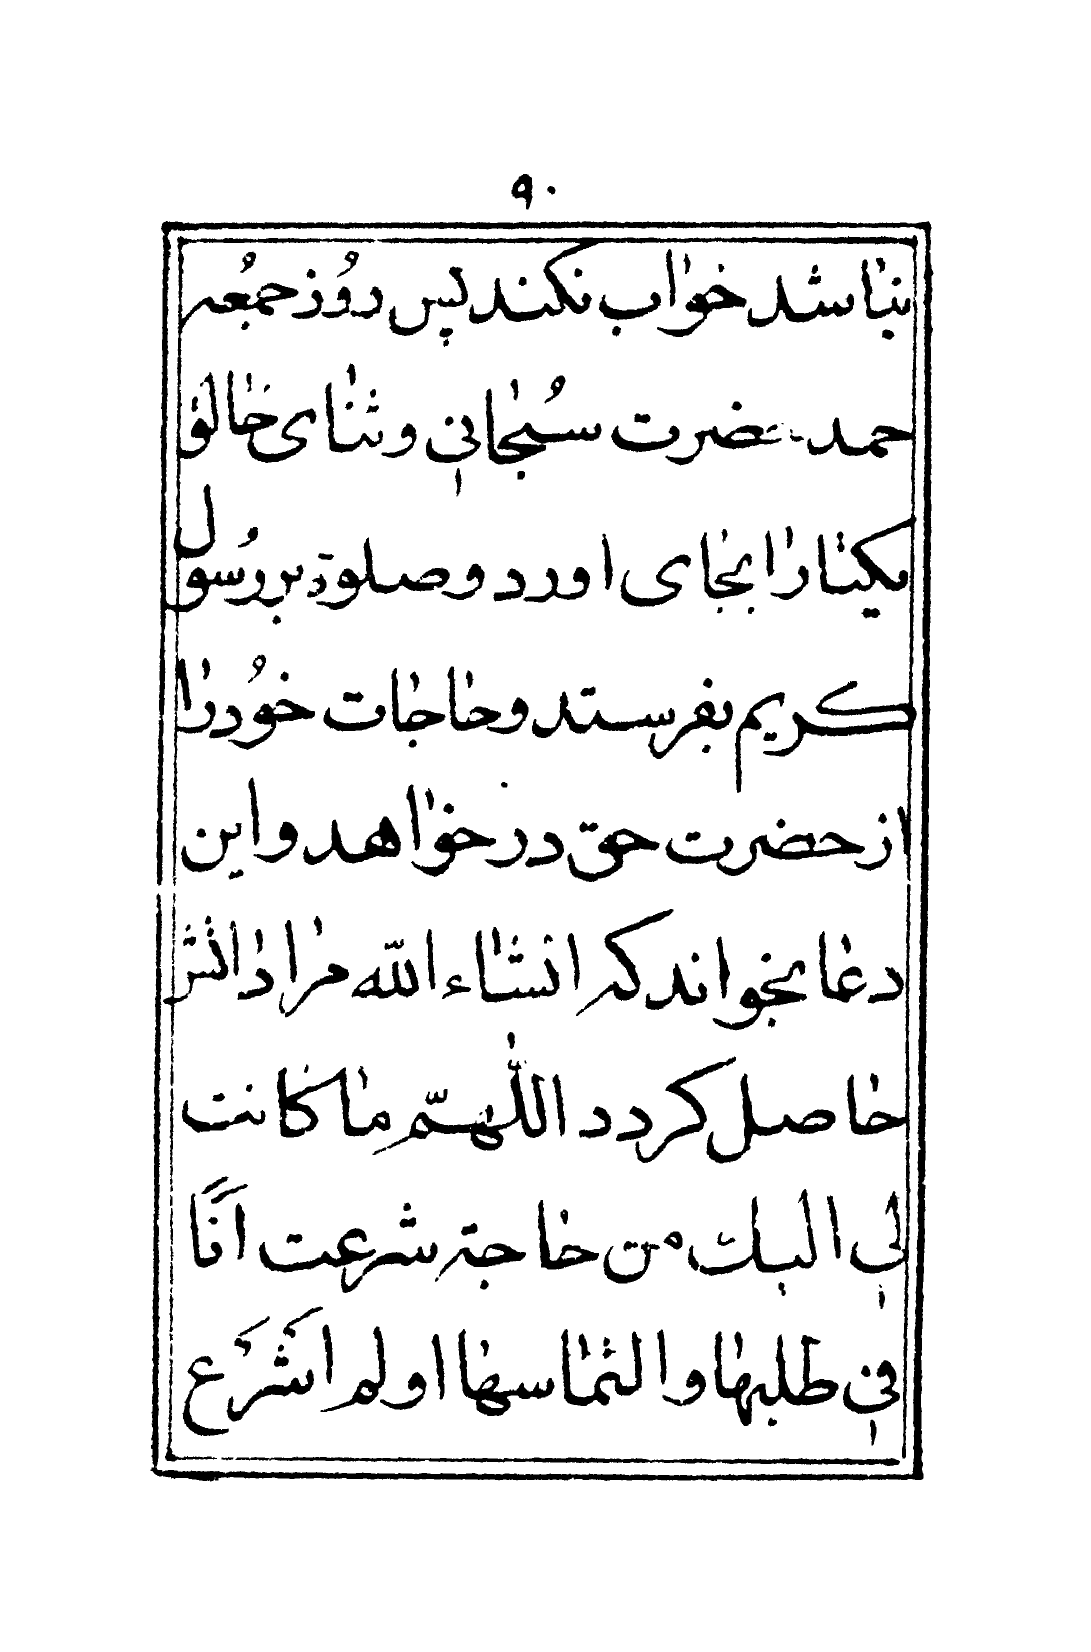 ۹۰
نباشد خواب نکند پس روُز جمعُه
حمد حضرت سُبحانی و ثنای خالق
یکتا را بجای اورد و صلوة بر رسُول
کریم بفرستد و حاجات خوُد را
از حضرت حق در خواهد و این
دعا بخواند که انشاء الله مرادانش
حاصل کردد اللهمّ ما کانت
لی الیك من حاجة شرعت اَنَا
فی طلبها و التماسها او لم اَشْرَع